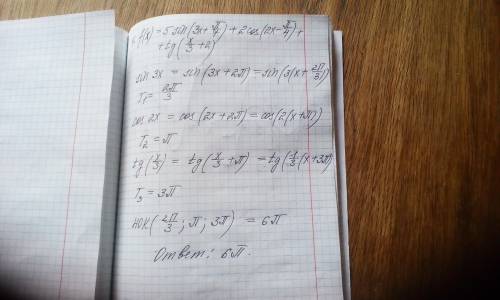 f(x) = 5 sin(3x + π/4) + 2 cos(2x − π/4) +
+ tg(x/3 + 2)
sin 3x = sin(3x + 2π) = sin(3(x + 2π/3))
T₁ = 2π/3
cos 2x = cos(2x + 2π) = cos(2(x + π))
T₂ = π
tg(x/3) = tg(x/3 + π) = tg(1/3(x + 3π)
T₃ = 3π
НОК(2π/3; π; 3π) = 6π
Ответ: 6π.